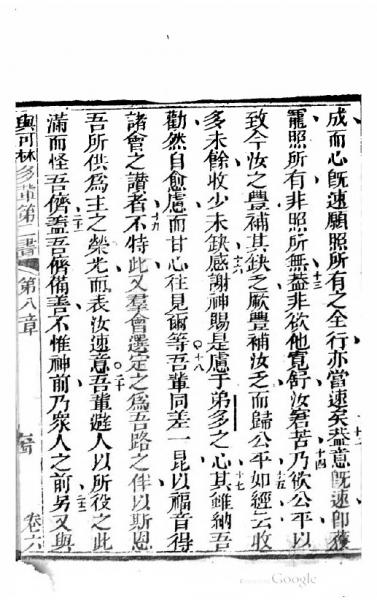 成而心既速願照所有之全行亦當速矣蓋意既速即獲
罷照所有非照所無蓋非欲他寬舒汝窘苦乃欲公平以
致今汝之豐補其缺乏厥豐補汝乏而歸公平如經云收
多未餘收少未缺感謝神賜是慮于弟多之心其雖納吾
勸然自愈慮而甘心往見爾等吾輩同差一昆以福音得
諸會之讚者不特此又羣會選定之爲吾路之伴以斯恩
吾所供爲主之榮光而表汝速意吾輩避人以所役之此
滿而怪吾儕蓋吾儕備善不惟神前乃衆人之前另又與
與可林多輩第二書 第八章 卷六
Google